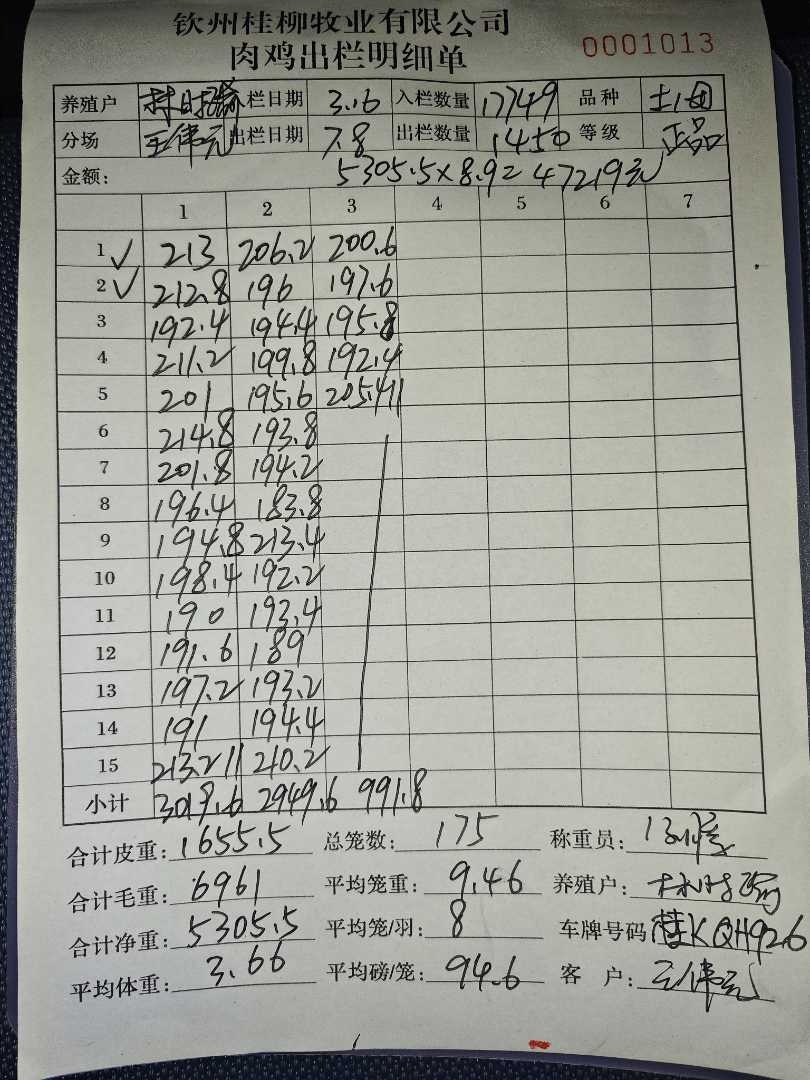 钦州桂柳牧业有限公司
肉鸡出栏明细单
0001013
养殖户 林时 入栏日期 3.16 入栏数量 17749 品种 土化
分场 王伟元 出栏日期 7.8 出栏数量 1450 等级 正品
金额: 5305.5×8.9= 47219元
1 2 3 4 5 6 7
1 ✓ 213 206.2 200.6
2 ✓ 212.8 196 197.6
3 192.4 194.4 195.8
4 211.2 199.8 192.4
5 201 195.6 205.4 11
6 214.8 193.8
7 201.8 194.2
8 196.4 183.8
9 194.8 213.4
10 198.4 192.2
11 190 193.4
12 191.6 189
13 197.2 193.2
14 191 194.4
15 213.2 11 210.2
小计 3019.6 2949.6 991.8
合计皮重: 1655.5 总笼数: 175 称重员:
合计毛重: 6961 平均笼重: 9.46 养殖户: 林时
合计净重: 5305.5 平均笼/羽: 8 车牌号码 桂KQH926
平均体重: 3.66 平均磅/笼: 94.6 客 户: 王伟元